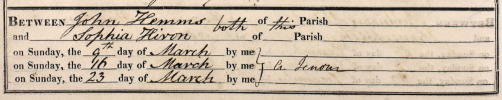 BETWEEN John Hemms both of this Parish
and Sophia Hiron of Parish
on Sunday, the 9th day of March by me
on Sunday, the 16 day of March by me
on Sunday, the 23 day of March by me